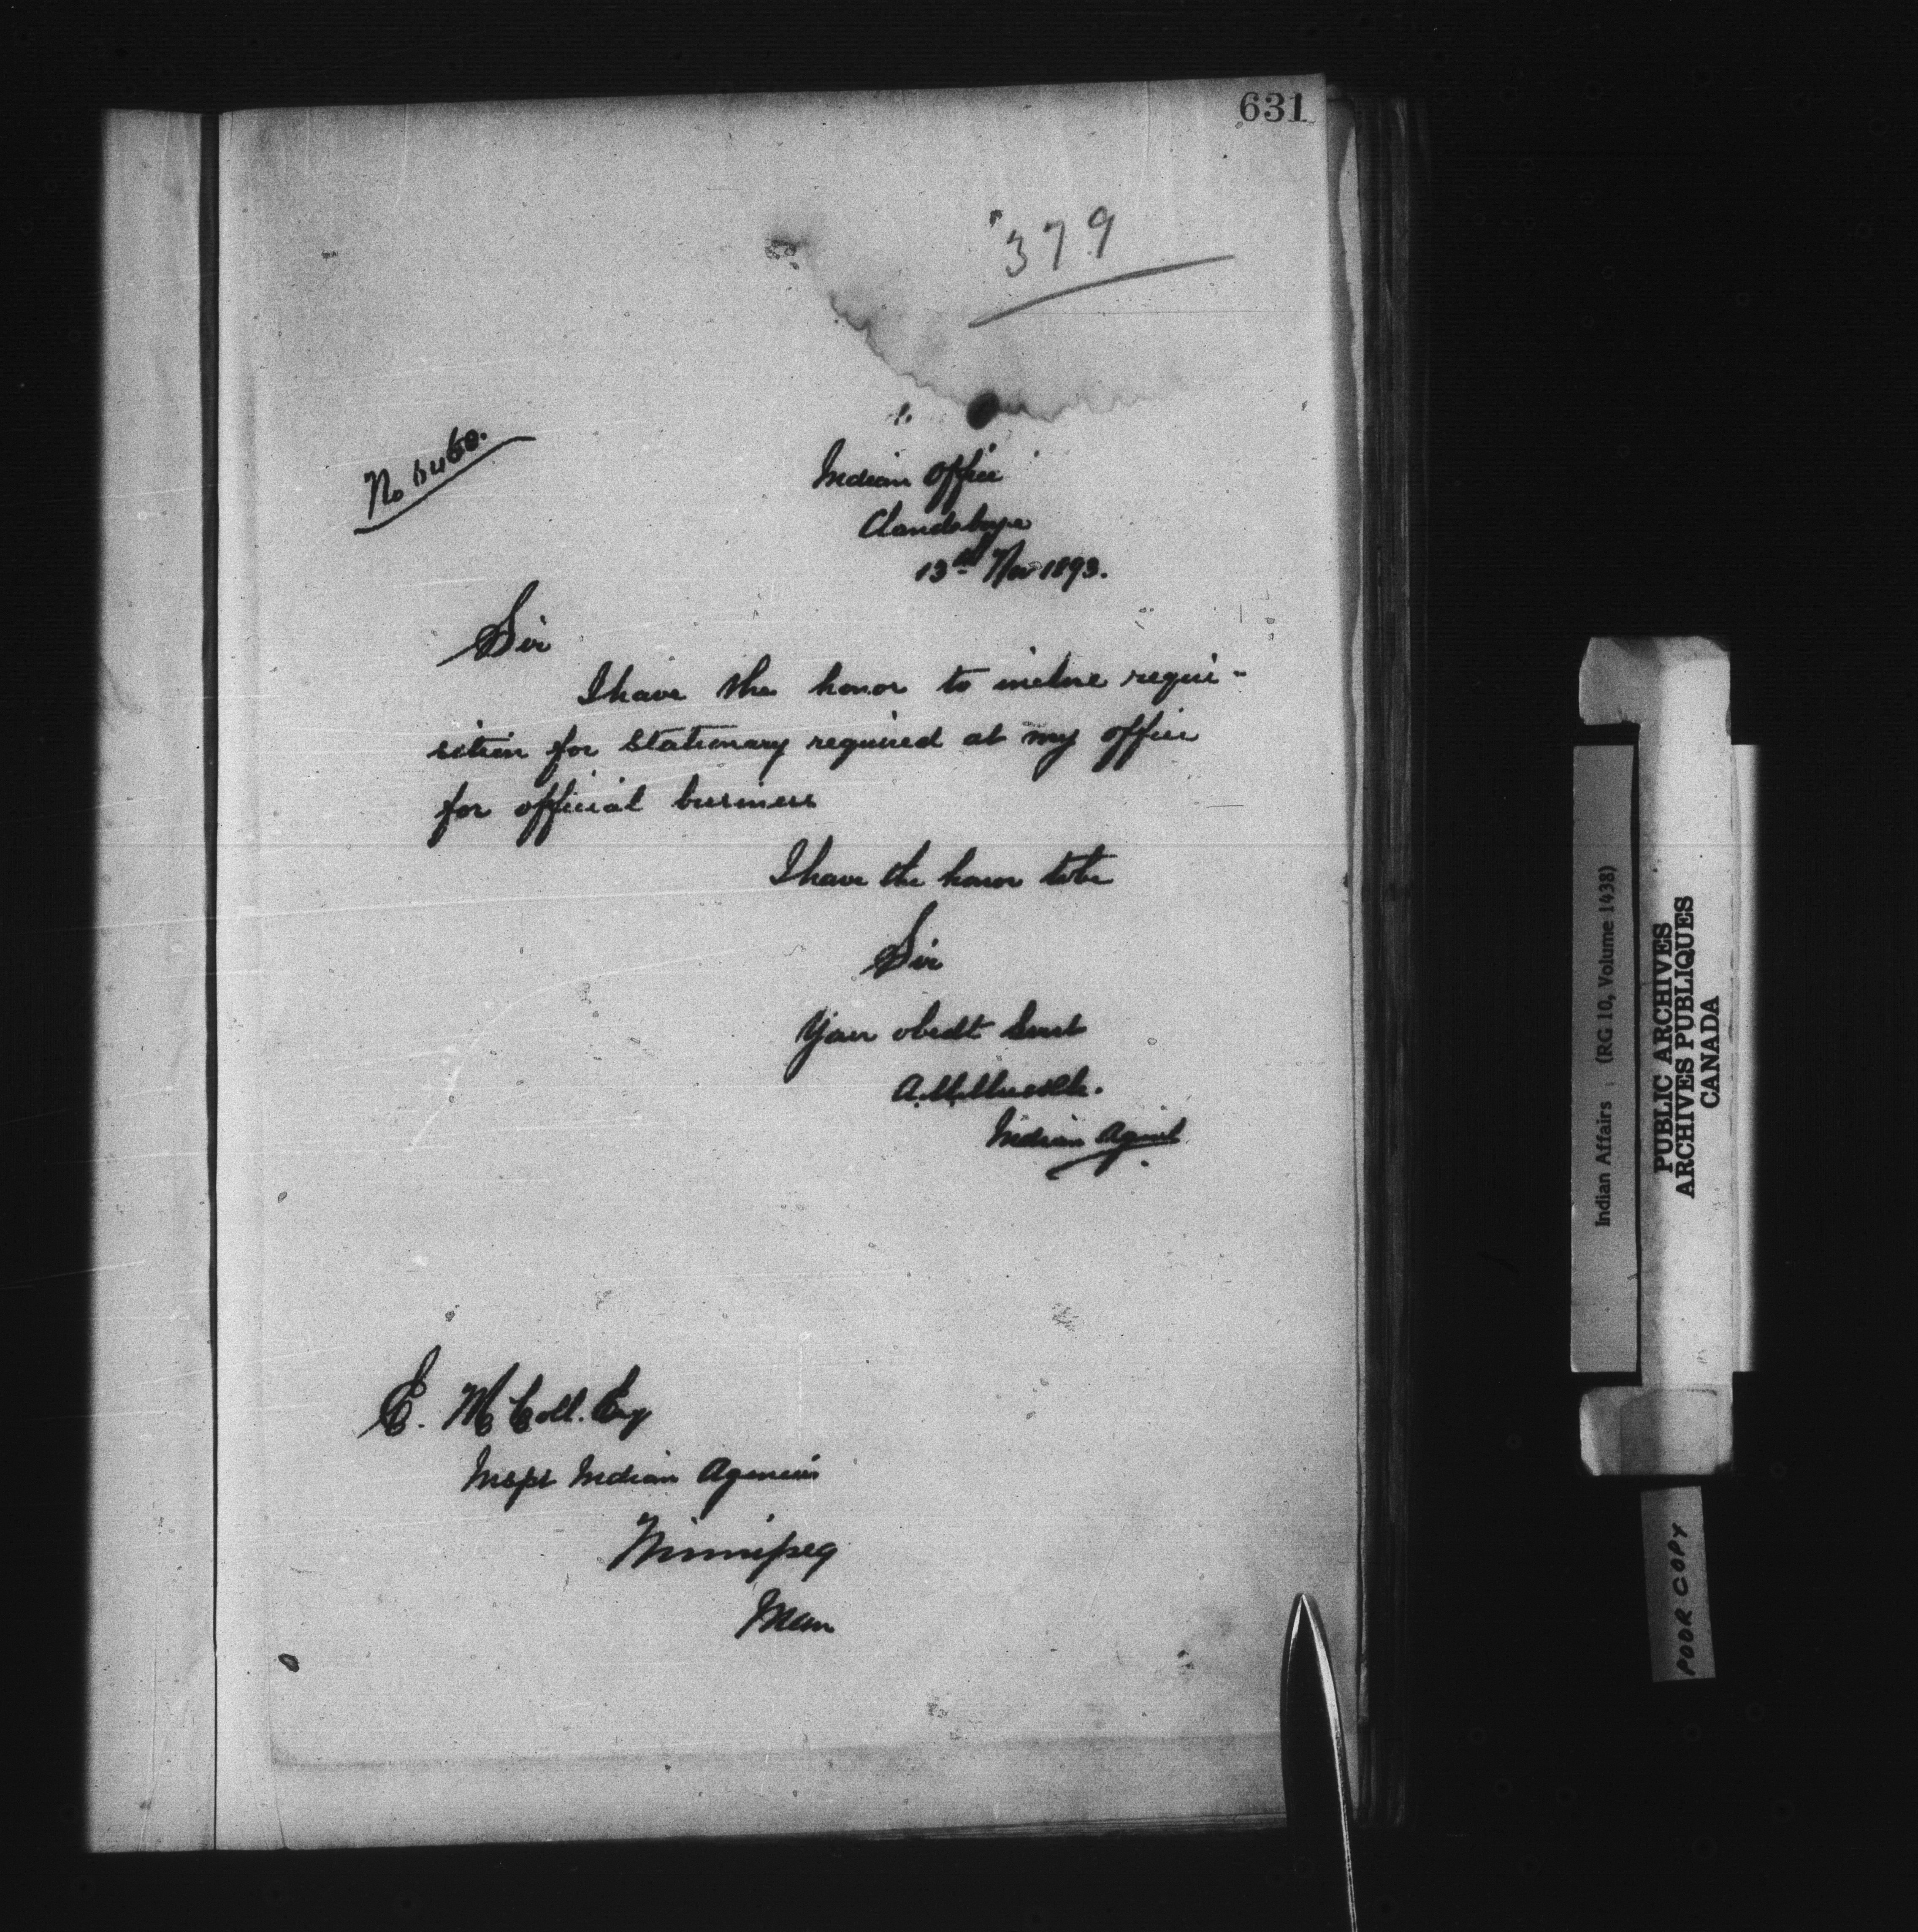 631
379
Indian Office
Clandeboye
13th Nov 1893.
Sir
I have the honor to inclose requi-
sition for Stationary required at my office
for official business
I have the honor to be
Sir
Your obedt Servt
Indian Agent
E. McColl. Esq
Inspt Indian Agencies
Winnipeg
Man
Indian Affairs : (RG 10, Volume 1438)
PUBLIC ARCHIVES
ARCHIVES PUBLIQUES
CANADA
POOR COPY